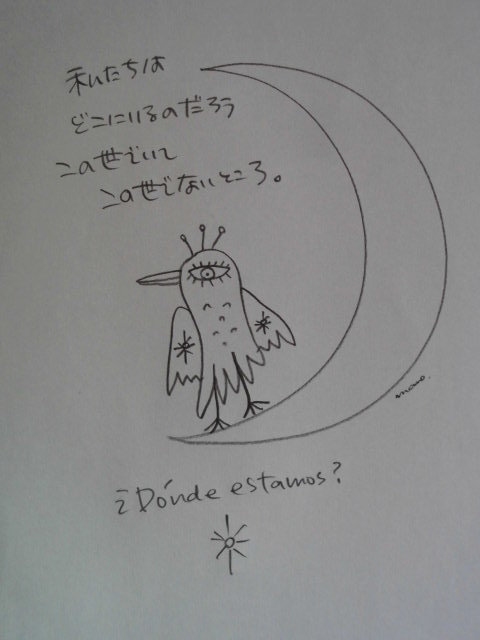 私たちは
どこにいるのだろう
この世でいて
この世でないところ。
momo.
¿Dónde estamos?